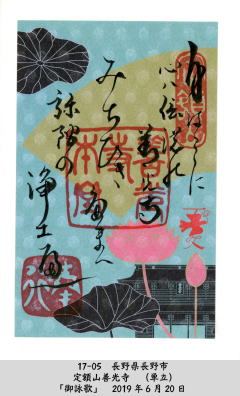 身はこゝに
心ハ信濃の
善光寺
みちびき
たまへ
弥陀の
浄土へ
17-05 長野県長野市
定額山善光寺 （単立）
「御詠歌」 2019年6月20日